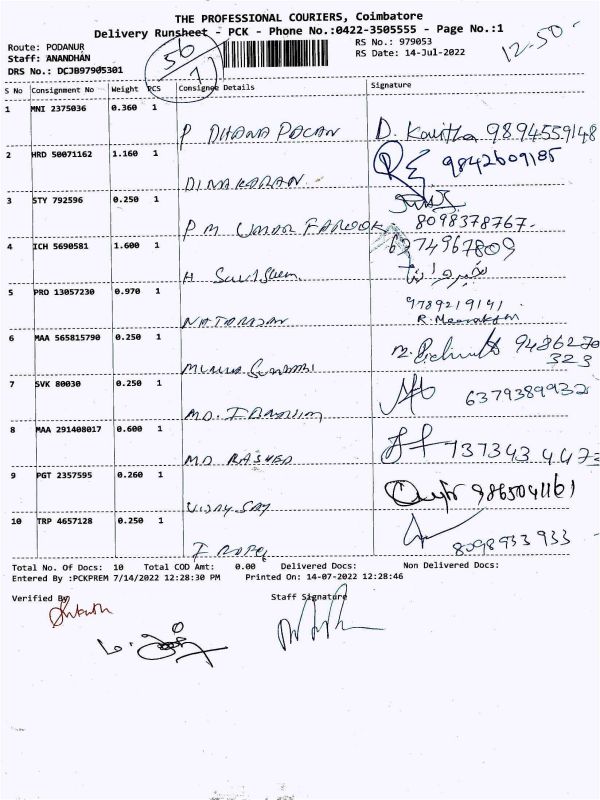 THE PROFESSIONAL COURIERS, Coimbatore
Delivery Runsheet - PCK - Phone No.:0422-3505555 - Page No.:1
12-50-
Route: PODANUR
Staff: ANANDHAN
DRS No.: DCJB97905301
56/
RS No.: 979053
RS Date: 14-Jul-2022
S No Consignment No Weight PCS Consignee Details Signature
1 MNI 2375036 0.360 1
P DHANA PACAN D. Kavitha 9894559148
2 HRD 50071162 1.160 1
DINAKARAN 9842609185
3 STY 792596 0.250 1
P M UMAR FAROOK 8098378767.
4 ICH 5690581 1.600 1
H 6374967809
5 PRO 13057230 0.970 1
NATARAJAN 9789219191
R. Meenakshi
6 MAA 565815790 0.250 1
9486270
323
7 SVK 80030 0.250 1
MD. IBRAHIM 6379389932
8 MAA 291408017 0.600 1
MD RASHED 737343 4473
9 PGT 2357595 0.260 1
VIJAY SAY 9865041161
10 TRP 4657128 0.250 1
8098933933
Total No. Of Docs: 10 Total COD Amt: 0.00 Delivered Docs: Non Delivered Docs:
Entered By :PCKPREM 7/14/2022 12:28:30 PM Printed On: 14-07-2022 12:28:46
Verified By Staff Signature